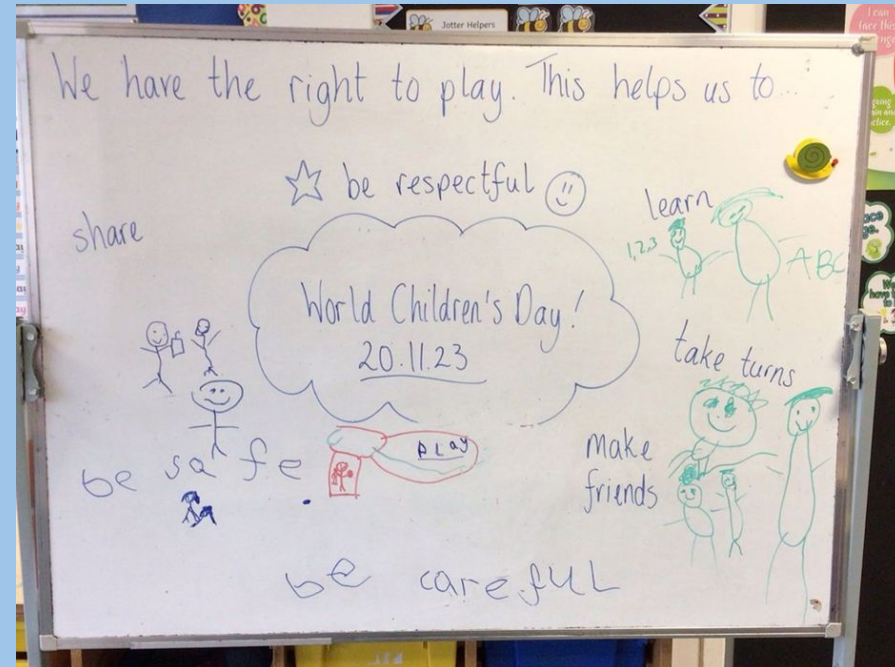 Jotter Helpers
We have the right to play. This helps us to...
be respectful
share
learn
1,2,3
ABC
World Children's Day!
20.11.23
take turns
PLay
make
friends
be safe
be carefuL
I can
face this